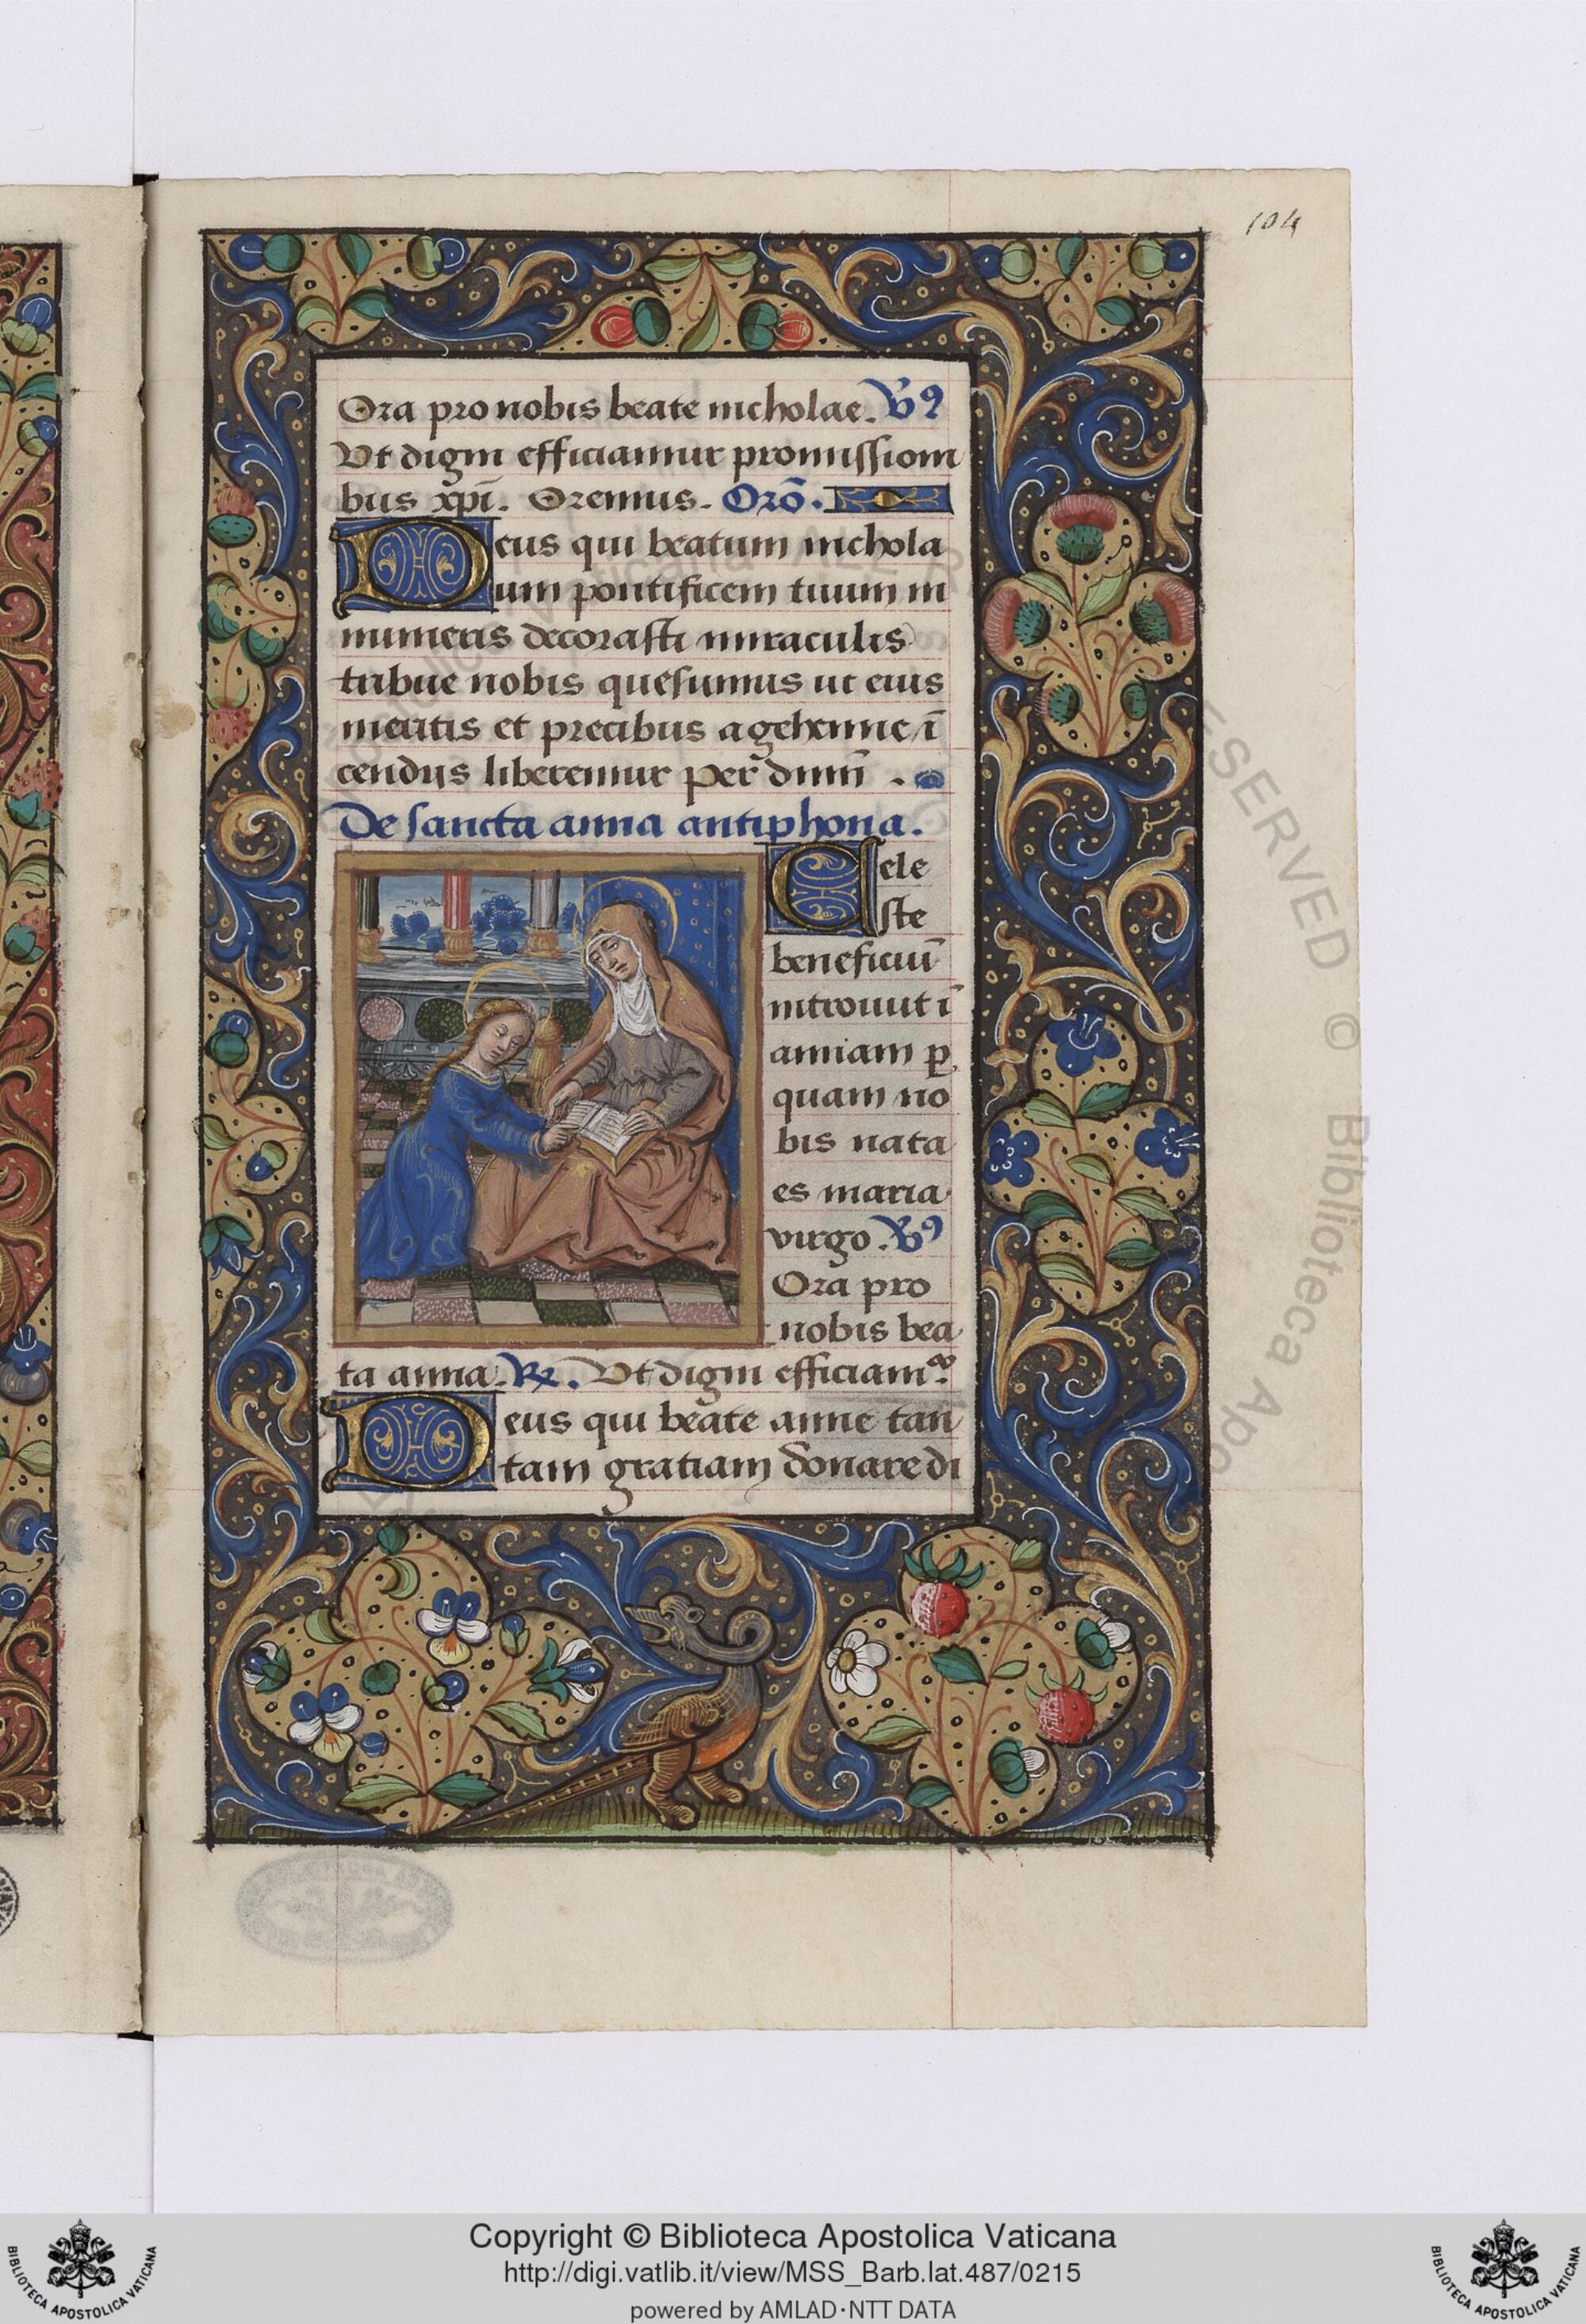 104
Ora pro nobis beate nicholae. V9
Vt digni efficiamur promissioni
bus xpī. Oremus. Orō.
Deus qui beatum nichola
um pontificem tuum in
numeris decorasti miraculis
tribue nobis quesumus ut eius
meritis et precibus a gehenne ī
cendiis liberemur per dnm̄ .
De sancta anna antiphona.
Cele
ste
beneficiū
introiuit ī
anniam p̱
quam no
bis nata
es maria
virgo. V9
Ora pro
nobis bea
ta anna. R. Vt digni efficiam.
Deus qui beate anne tan
tam gratiam donare di
RESERVED © Biblioteca Apo
Copyright © Biblioteca Apostolica Vaticana
http://digi.vatlib.it/view/MSS_Barb.lat.487/0215
powered by AMLAD·NTT DATA
BIBLIOTECA APOSTOLICA VATICANA
BIBLIOTECA APOSTOLICA VATICANA